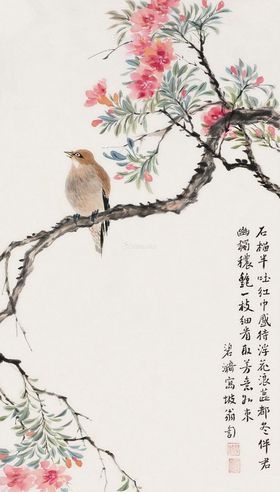 石榴半吐紅巾蹙待浮花浪蕊都尽伴君
幽獨穠艷一枝細看取芳意如束
寫坡翁句